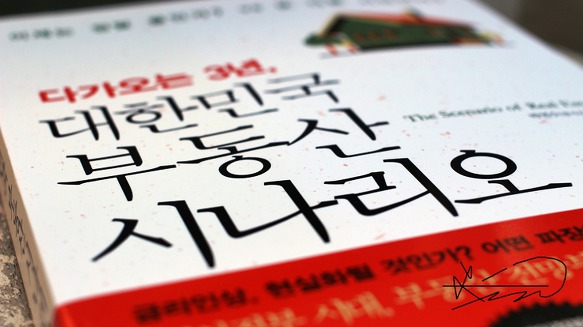 다가오는 3년,
대한민국
부동산
시나리오
The Scenario of Real
금리인상, 현실화될 것인가? 어떤 파장
시대, 부동산